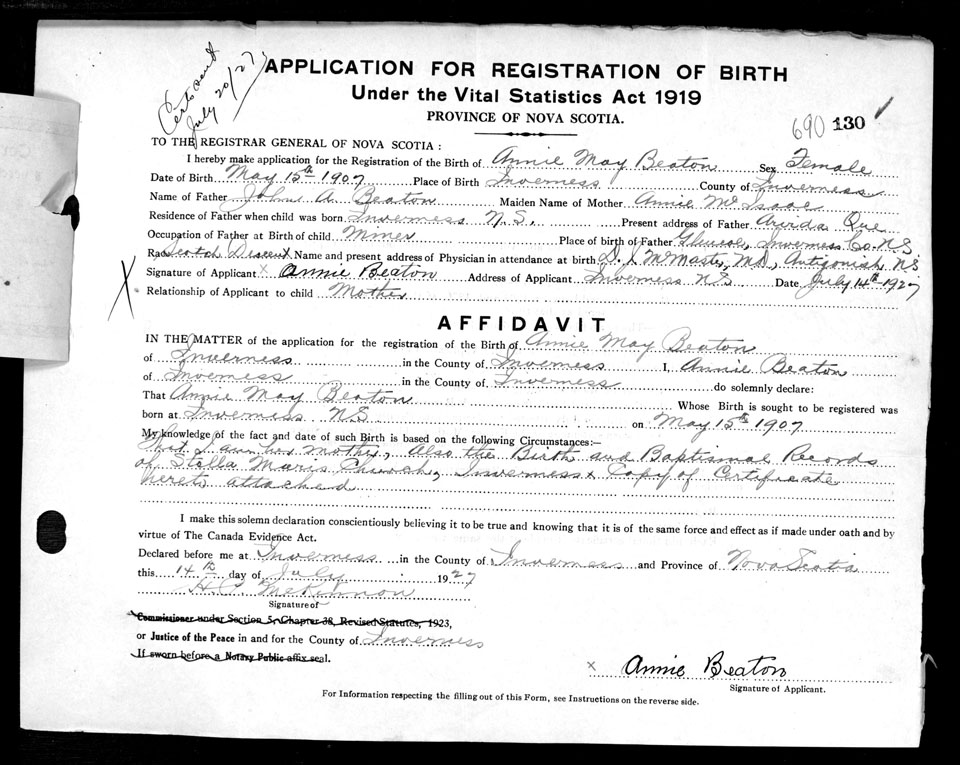 Cert sent
July 20/27
APPLICATION FOR REGISTRATION OF BIRTH
Under the Vital Statistics Act 1919
PROVINCE OF NOVA SCOTIA.
690 130
TO THE REGISTRAR GENERAL OF NOVA SCOTIA:
I hereby make application for the Registration of the Birth of Annie May Beaton Sex Female
Date of Birth May 15th 1907 Place of Birth Inverness County of Inverness
Name of Father John A. Beaton Maiden Name of Mother Annie Mc Isaac
Residence of Father when child was born Inverness N.S. Present address of Father Arvida Que
Occupation of Father at Birth of child Miner Place of birth of Father Glencoe, Inverness Co. N.S
Race Scotch Descent Name and present address of Physician in attendance at birth D. J. McMaster, MD, Antigonish NS
Signature of Applicant x Annie Beaton Address of Applicant Inverness N.S Date July 14th 1927
Relationship of Applicant to child Mother
AFFIDAVIT
IN THE MATTER of the application for the registration of the Birth of Annie May Beaton
of Inverness in the County of Inverness I, Annie Beaton
of Inverness in the County of Inverness do solemnly declare:
That Annie May Beaton Whose Birth is sought to be registered was
born at Inverness N.S on May 15th 1907
My knowledge of the fact and date of such Birth is based on the following Circumstances:—
That I am her mother, Also the Birth and Baptismal Records
of Stella Maris Church, Inverness x Copy of Certificate
hereto attached
I make this solemn declaration conscientiously believing it to be true and knowing that it is of the same force and effect as if made under oath and by
virtue of The Canada Evidence Act.
Declared before me at Inverness in the County of Inverness and Province of Nova Scotia
this 14th day of July 1927
McKinnon
Signature of
Commissioner under Section 5, Chapter 38, Revised Statutes, 1923,
or Justice of the Peace in and for the County of Inverness
If sworn before a Notary Public affix seal.
x Annie Beaton
Signature of Applicant.
For Information respecting the filling out of this Form, see Instructions on the reverse side.